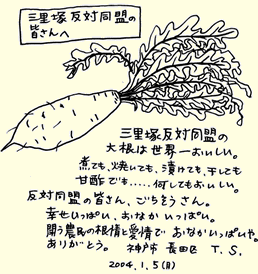 三里塚反対同盟の
皆さんへ
三里塚反対同盟の
大根は世界一おいしい。
煮ても、焼いても、漬けても、干しても
甘酢でも.....何してもおいしい。
反対同盟の皆さん、ごちそうさん。
幸せいっぱい、おなかいっぱい。
闘う農民の根情と愛情で おなかいっぱいや。
ありがとう。 神戸市 長田区 T. S.
2004.1.5(日)